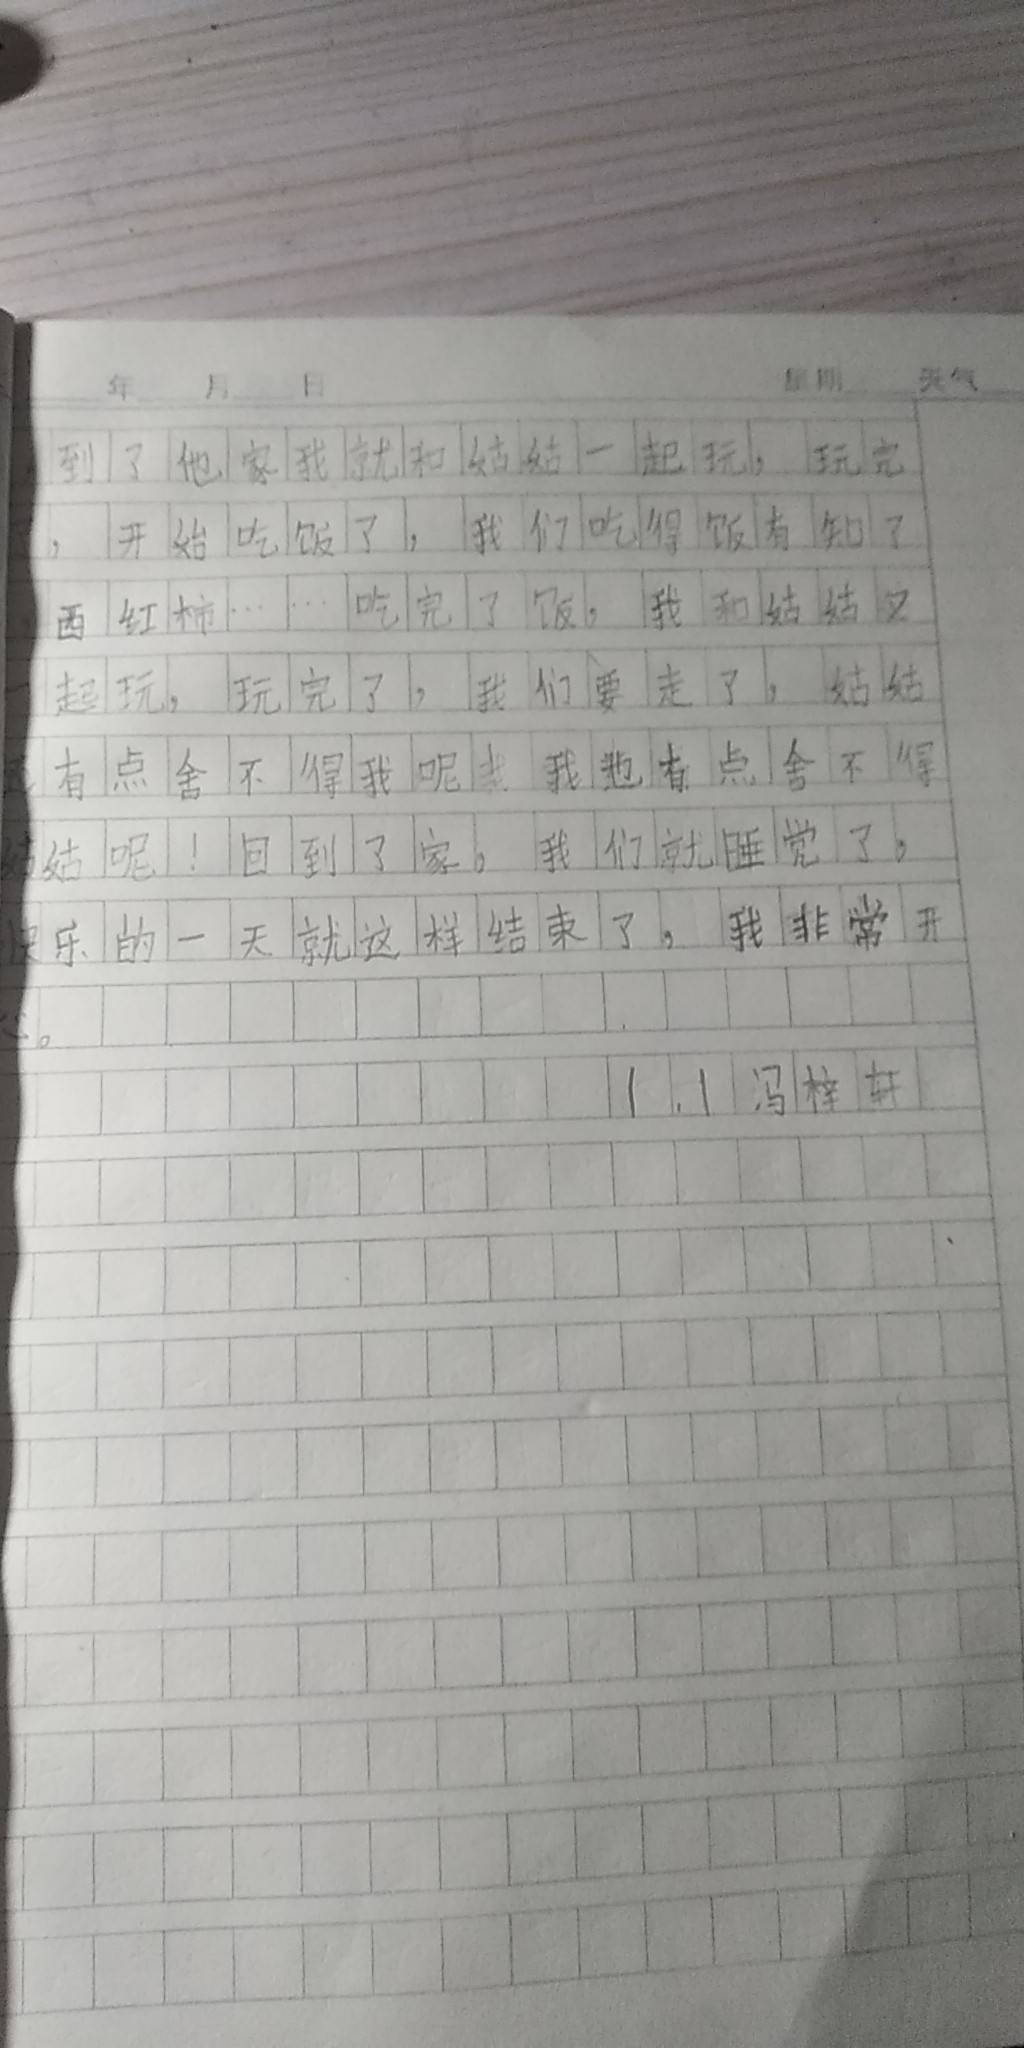 年 月 日 星期 天气
到了他家我就和姑姑一起玩，玩完
，开始吃饭了，我们吃得饭有知了
西红柿……吃完了饭。我和姑姑又
起玩，玩完了，我们要走了，姑姑
有点舍不得我呢 我也有点舍不得
姑姑呢！回到了家。我们就睡觉了。
快乐的一天就这样结束了，我非常开
心。
1.1冯梓轩